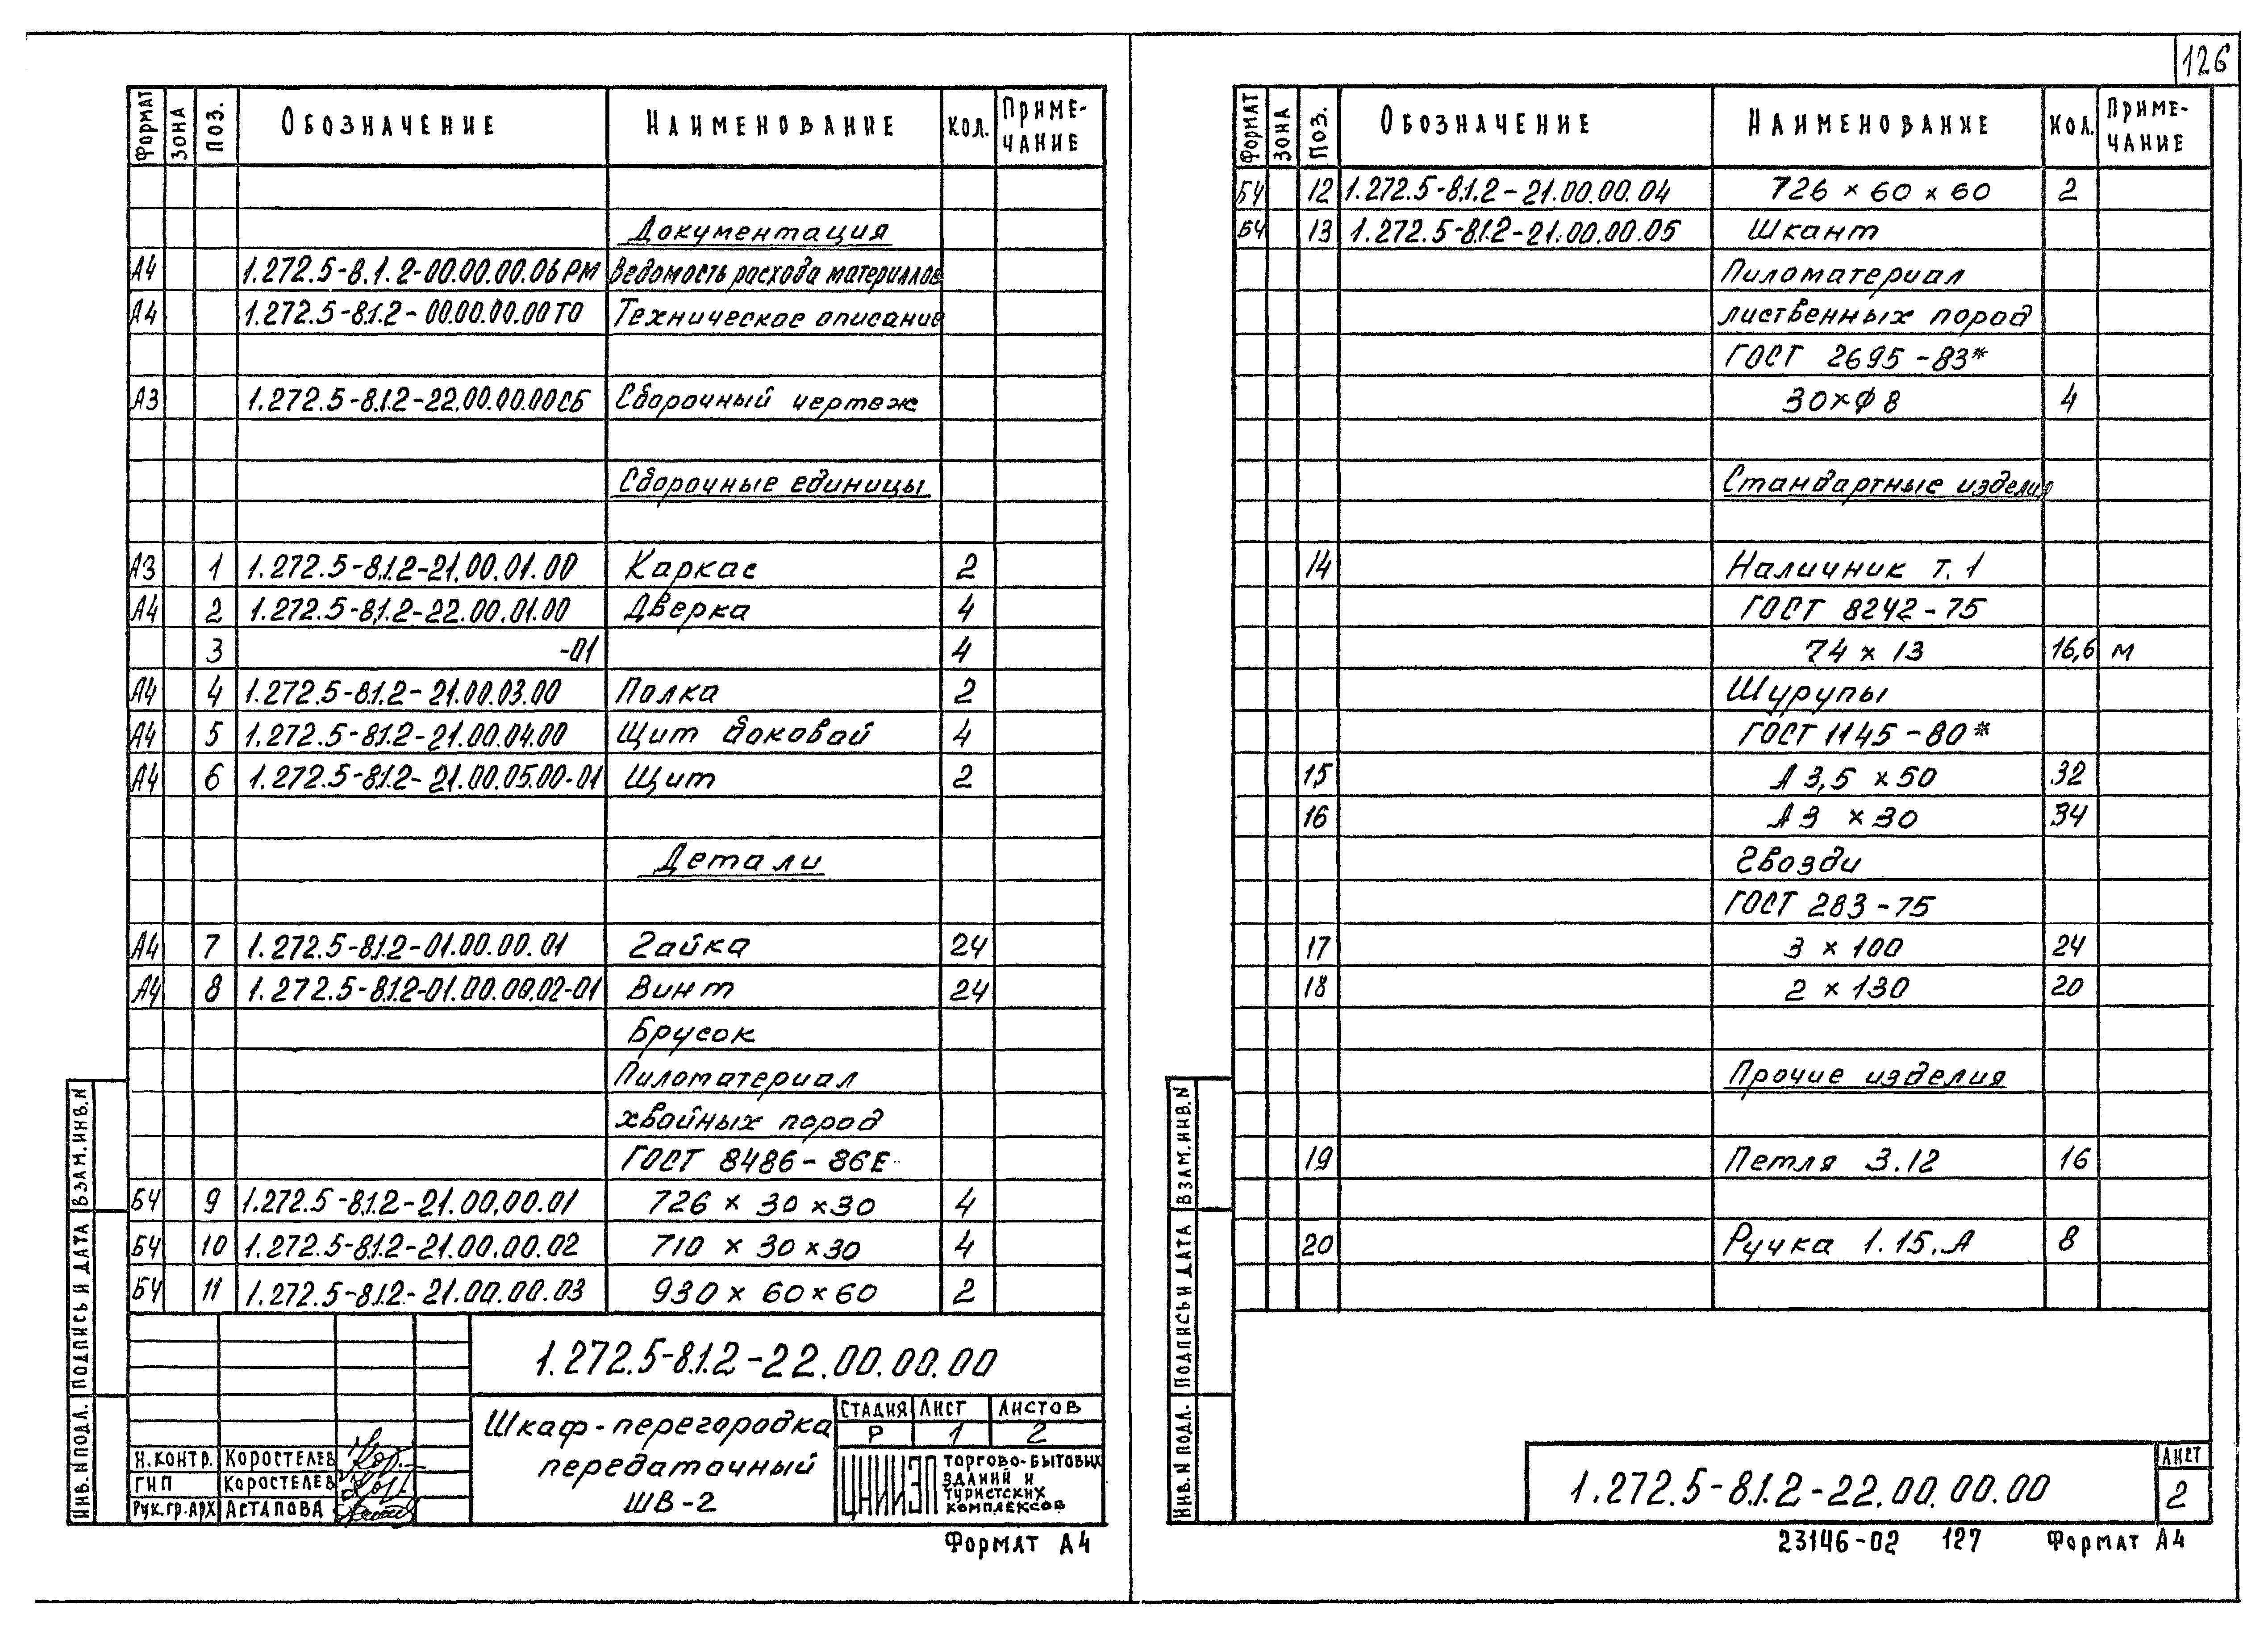 126
Формат Зона Поз. Обозначение Наименование Кол. Приме-
чание
Документация
А4 1.272.5-8.1.2-00.00.00.06РМ Ведомость расхода материалов
А4 1.272.5-8.1.2-00.00.00.00ТО Техническое описание
А3 1.272.5-8.1.2-22.00.00.00СБ Сборочный чертеж
Сборочные единицы
А3 1 1.272.5-8.1.2-21.00.01.00 Каркас 2
А4 2 1.272.5-8.1.2-22.00.01.00 Дверка 4
3 -01 4
А4 4 1.272.5-8.1.2-21.00.03.00 Полка 2
А4 5 1.272.5-8.1.2-21.00.04.00 Щит боковой 4
А4 6 1.272.5-8.1.2-21.00.05.00-01 Щит 2
Детали
А4 7 1.272.5-8.1.2-01.00.00.01 Гайка 24
А4 8 1.272.5-8.1.2-01.00.00.02-01 Винт 24
Брусок
Пиломатериал
хвойных пород
ГОСТ 8486-86Е
БЧ 9 1.272.5-8.1.2-21.00.00.01 726 × 30 × 30 4
БЧ 10 1.272.5-8.1.2-21.00.00.02 710 × 30 × 30 4
БЧ 11 1.272.5-8.1.2-21.00.00.03 930 × 60 × 60 2
1.272.5-8.1.2-22.00.00.00
Шкаф-перегородка
передаточный
ШВ-2
Стадия Лист Листов
Р 1 2
ЦНИИЭП торгово-бытовых
зданий и
туристских
комплексов
Н.контр. Коростелев
ГИП Коростелев
Рук.гр.арх Астапова
Инв.N подл. Подпись и дата Взам.инв.N
Формат А4
Формат Зона Поз. Обозначение Наименование Кол. Приме-
чание
БЧ 12 1.272.5-8.1.2-21.00.00.04 726 × 60 × 60 2
БЧ 13 1.272.5-8.1.2-21.00.00.05 Шкант
Пиломатериал
лиственных пород
ГОСТ 2695-83*
30×Ф8 4
Стандартные изделия
14 Наличник т.1
ГОСТ 8242-75
74 × 13 16,6 м
Шурупы
ГОСТ 1145-80*
15 А 3,5 × 50 32
16 А3 × 30 34
Гвозди
ГОСТ 283-75
17 3 × 100 24
18 2 × 130 20
Прочие изделия
19 Петля 3.12 16
20 Ручка 1.15.А 8
Инв.N подл. Подпись и дата Взам.инв.N
1.272.5-8.1.2-22.00.00.00
Лист
2
23146-02 127 Формат А4